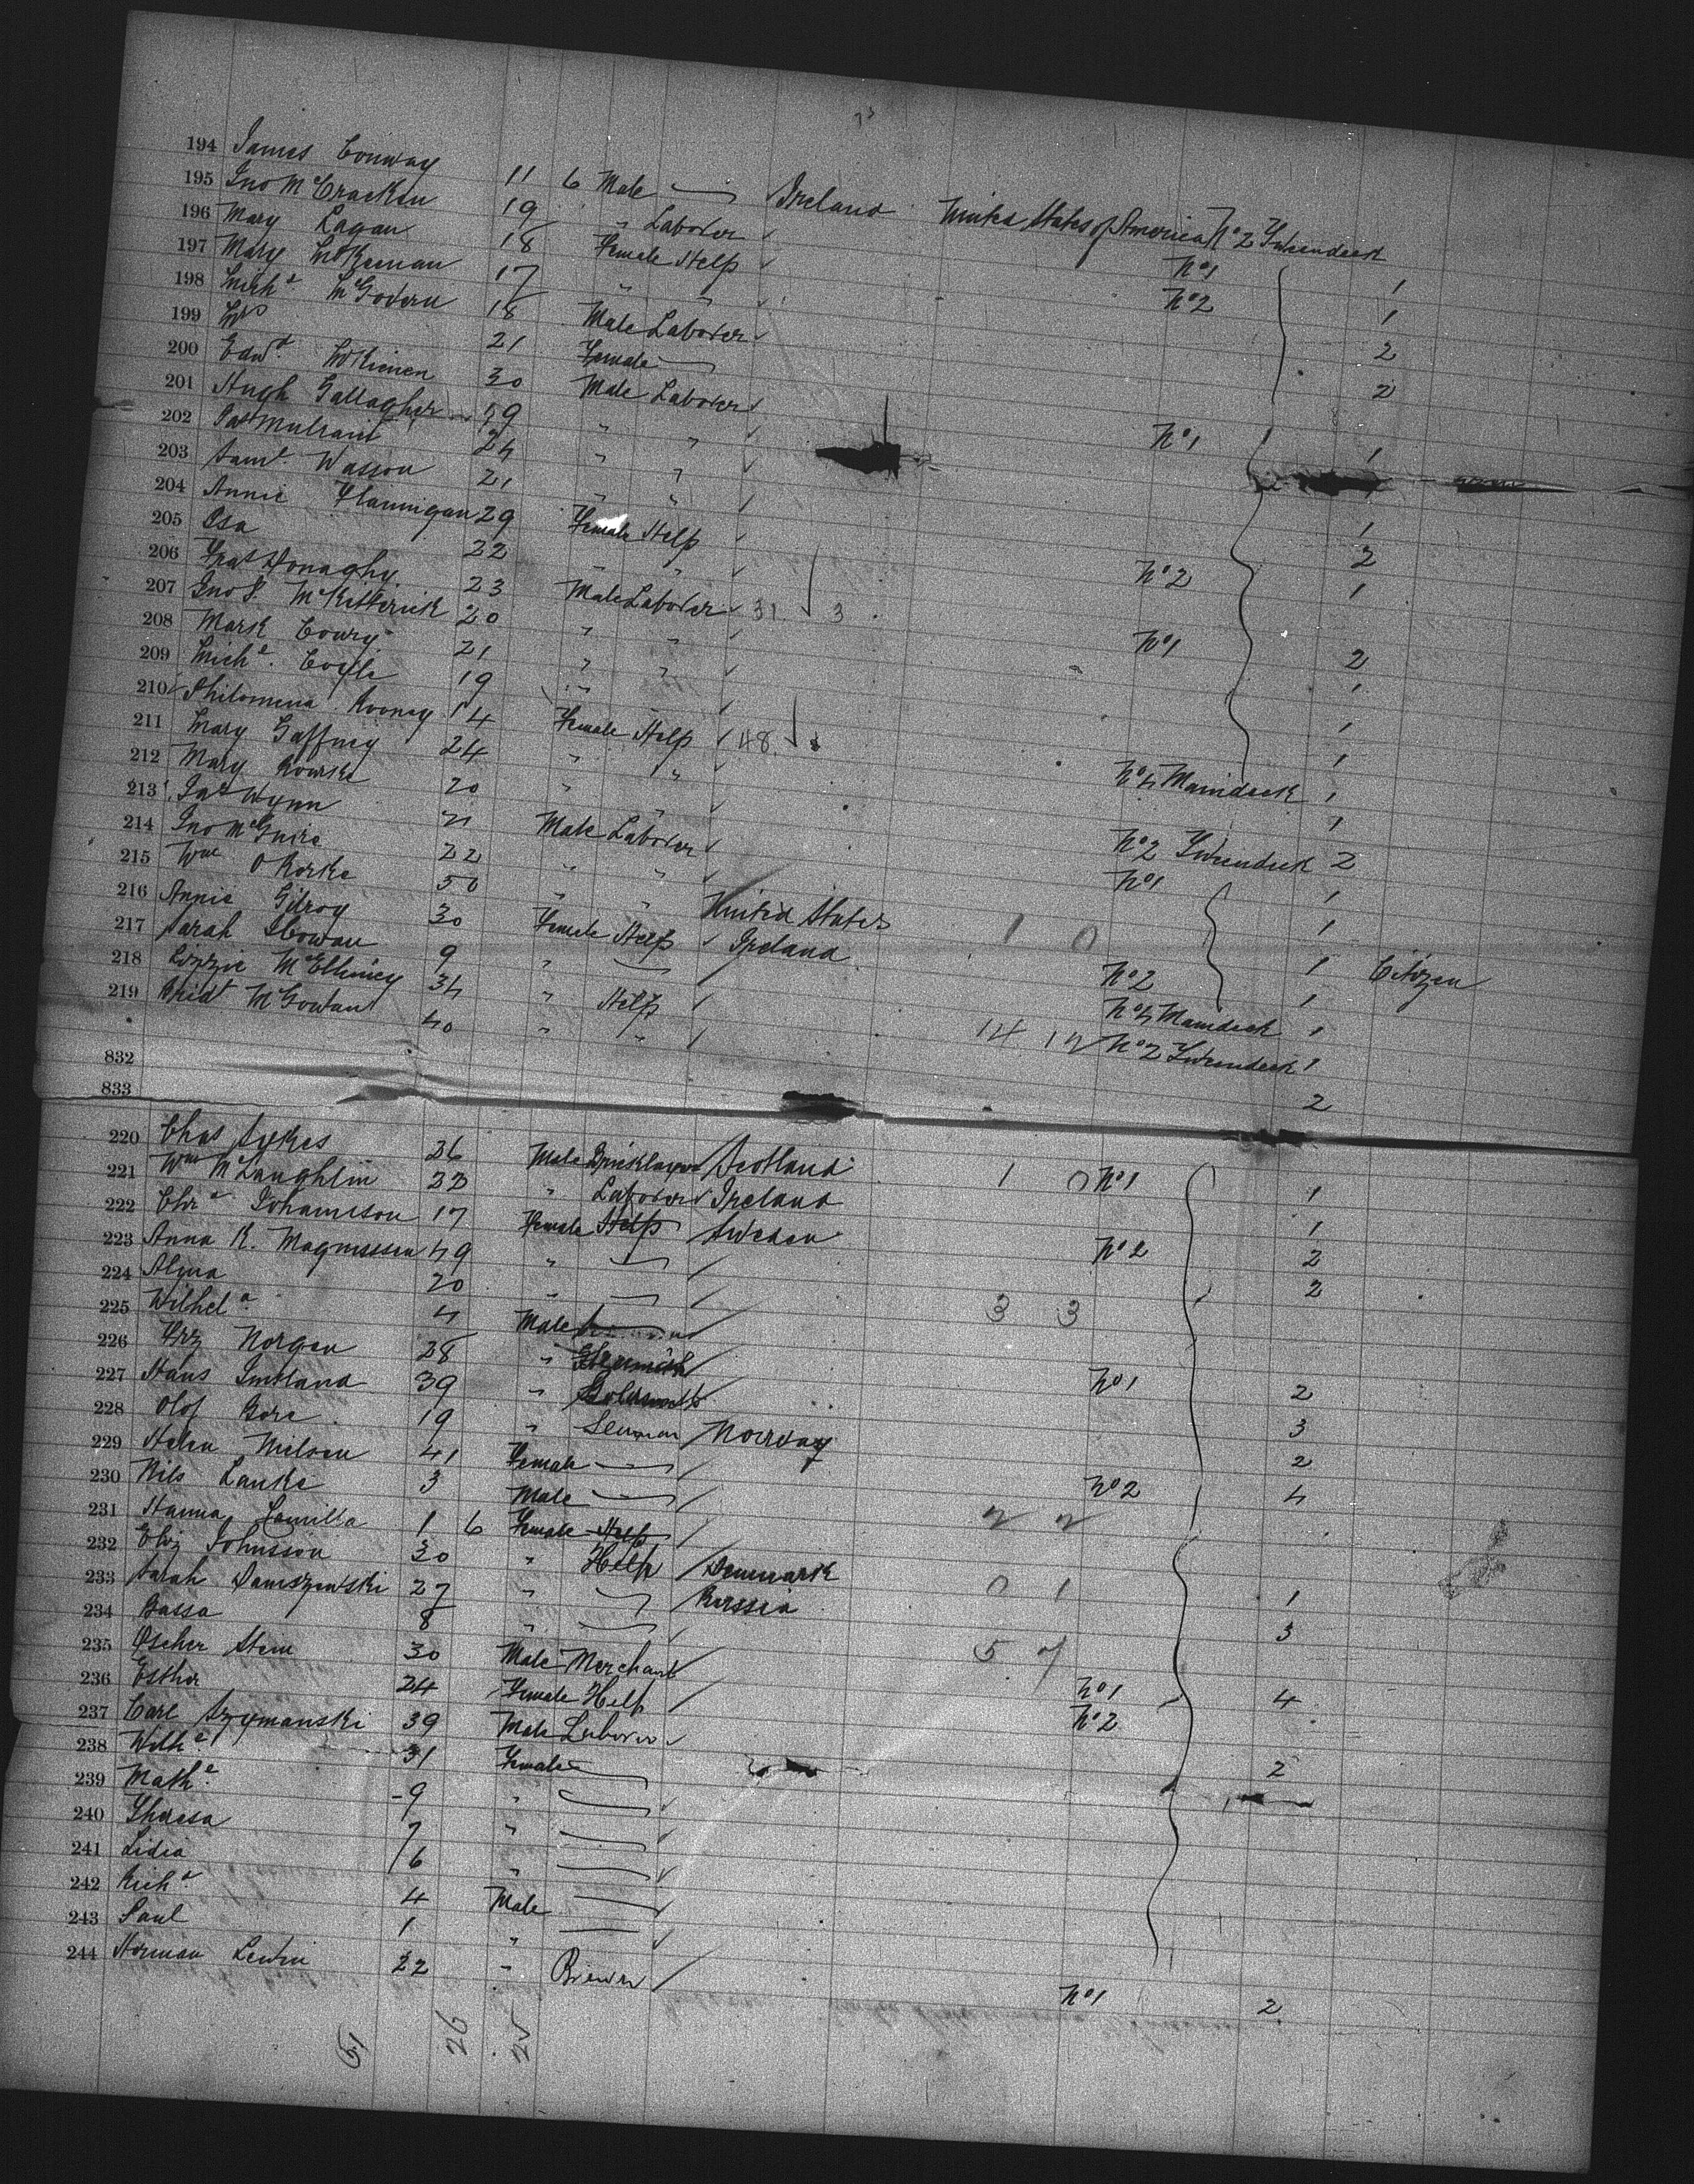 194 James Conway 11 6 Male Ireland United States of America No 2 Tweendeck
195 Jno McCracken 19 " Laborer No 1 1
196 Mary Lagan 18 Female Help No 2 1
197 Mary 17 " " 2
198 Mich l McGovern 18 Male Laborer 2
199 Mrs 21 Female
200 Edwd 30 Male Laborer No 1 1
201 Hugh Gallagher 19 " "
202 Pat 24 " " 1
203 Saml Wasson 21 " " 2
204 Annie Flannigan 29 Female Help No 2 1
205 Osa 22 " "
206 Fras Donaghy 23 Male Laborer 31 3 No 1 2
207 Jno S. McKitterick 20 " " 1
208 Mark 21 " " 1
209 Mich l Coyle 19 " 1
210 Philomena Rooney 14 Female Help 48 No 4 Maindeck 1
211 Mary Gaffney 24 " " 1
212 Mary Rourke 20 " " No 2 Tweendeck 2
213 Jas Wynn 21 Male Laborer No 1 1
214 Jno McGuire 22 " " 1
215 Wm O Rorke 50 " " United States 1 0 1 Citizen
216 Annie Gilroy 30 Female Help Ireland No 2 1
217 Sarah 9 " No 4 Maindeck 1
218 Lizzie McElhiney 34 " Help 14 12 No 2 Tweendeck 1
219 Brid t McGowan 40 " " 2
832
833
220 Chas Sykes 26 Male Bricklayer Scotland 1 0 No 1 1
221 Wm McLaughlin 22 " Laborer Ireland 1
222 Chr a Johansson 17 Female Help Sweden No 2 2
223 Anna K. Magnussen 49 " 2
224 Alma 20 "
225 Wilhel a 4 Male 3 3
226 Norgen 28 " No 1 2
227 Hans 39 " Goldsmith 3
228 Olof Bore 19 " Seaman Norway 2
229 Helen Nielsen 41 Female No 2 4
230 Nils Lauke 3 Male
231 Hanna Camilla 1 6 Female Help 2 2
232 Eliz Johnsson 30 " Help Denmark 0 1 1
233 Sarah 27 " Russia 3
234 Bassa 8 "
235 Ascher Stein 30 Male Merchant 5 7 No 1 4
236 Esther 24 Female Help No 2
237 Carl Szymanski 39 Male Laborer 2
238 Wilh e 31 Female
239 Math e 9 "
240 Theresa 7 "
241 Lidia 6 "
242 Rich d 4 Male
243 Paul 1 "
244 Herman Lewin 22 " Brewer No 1 2
51 26 25